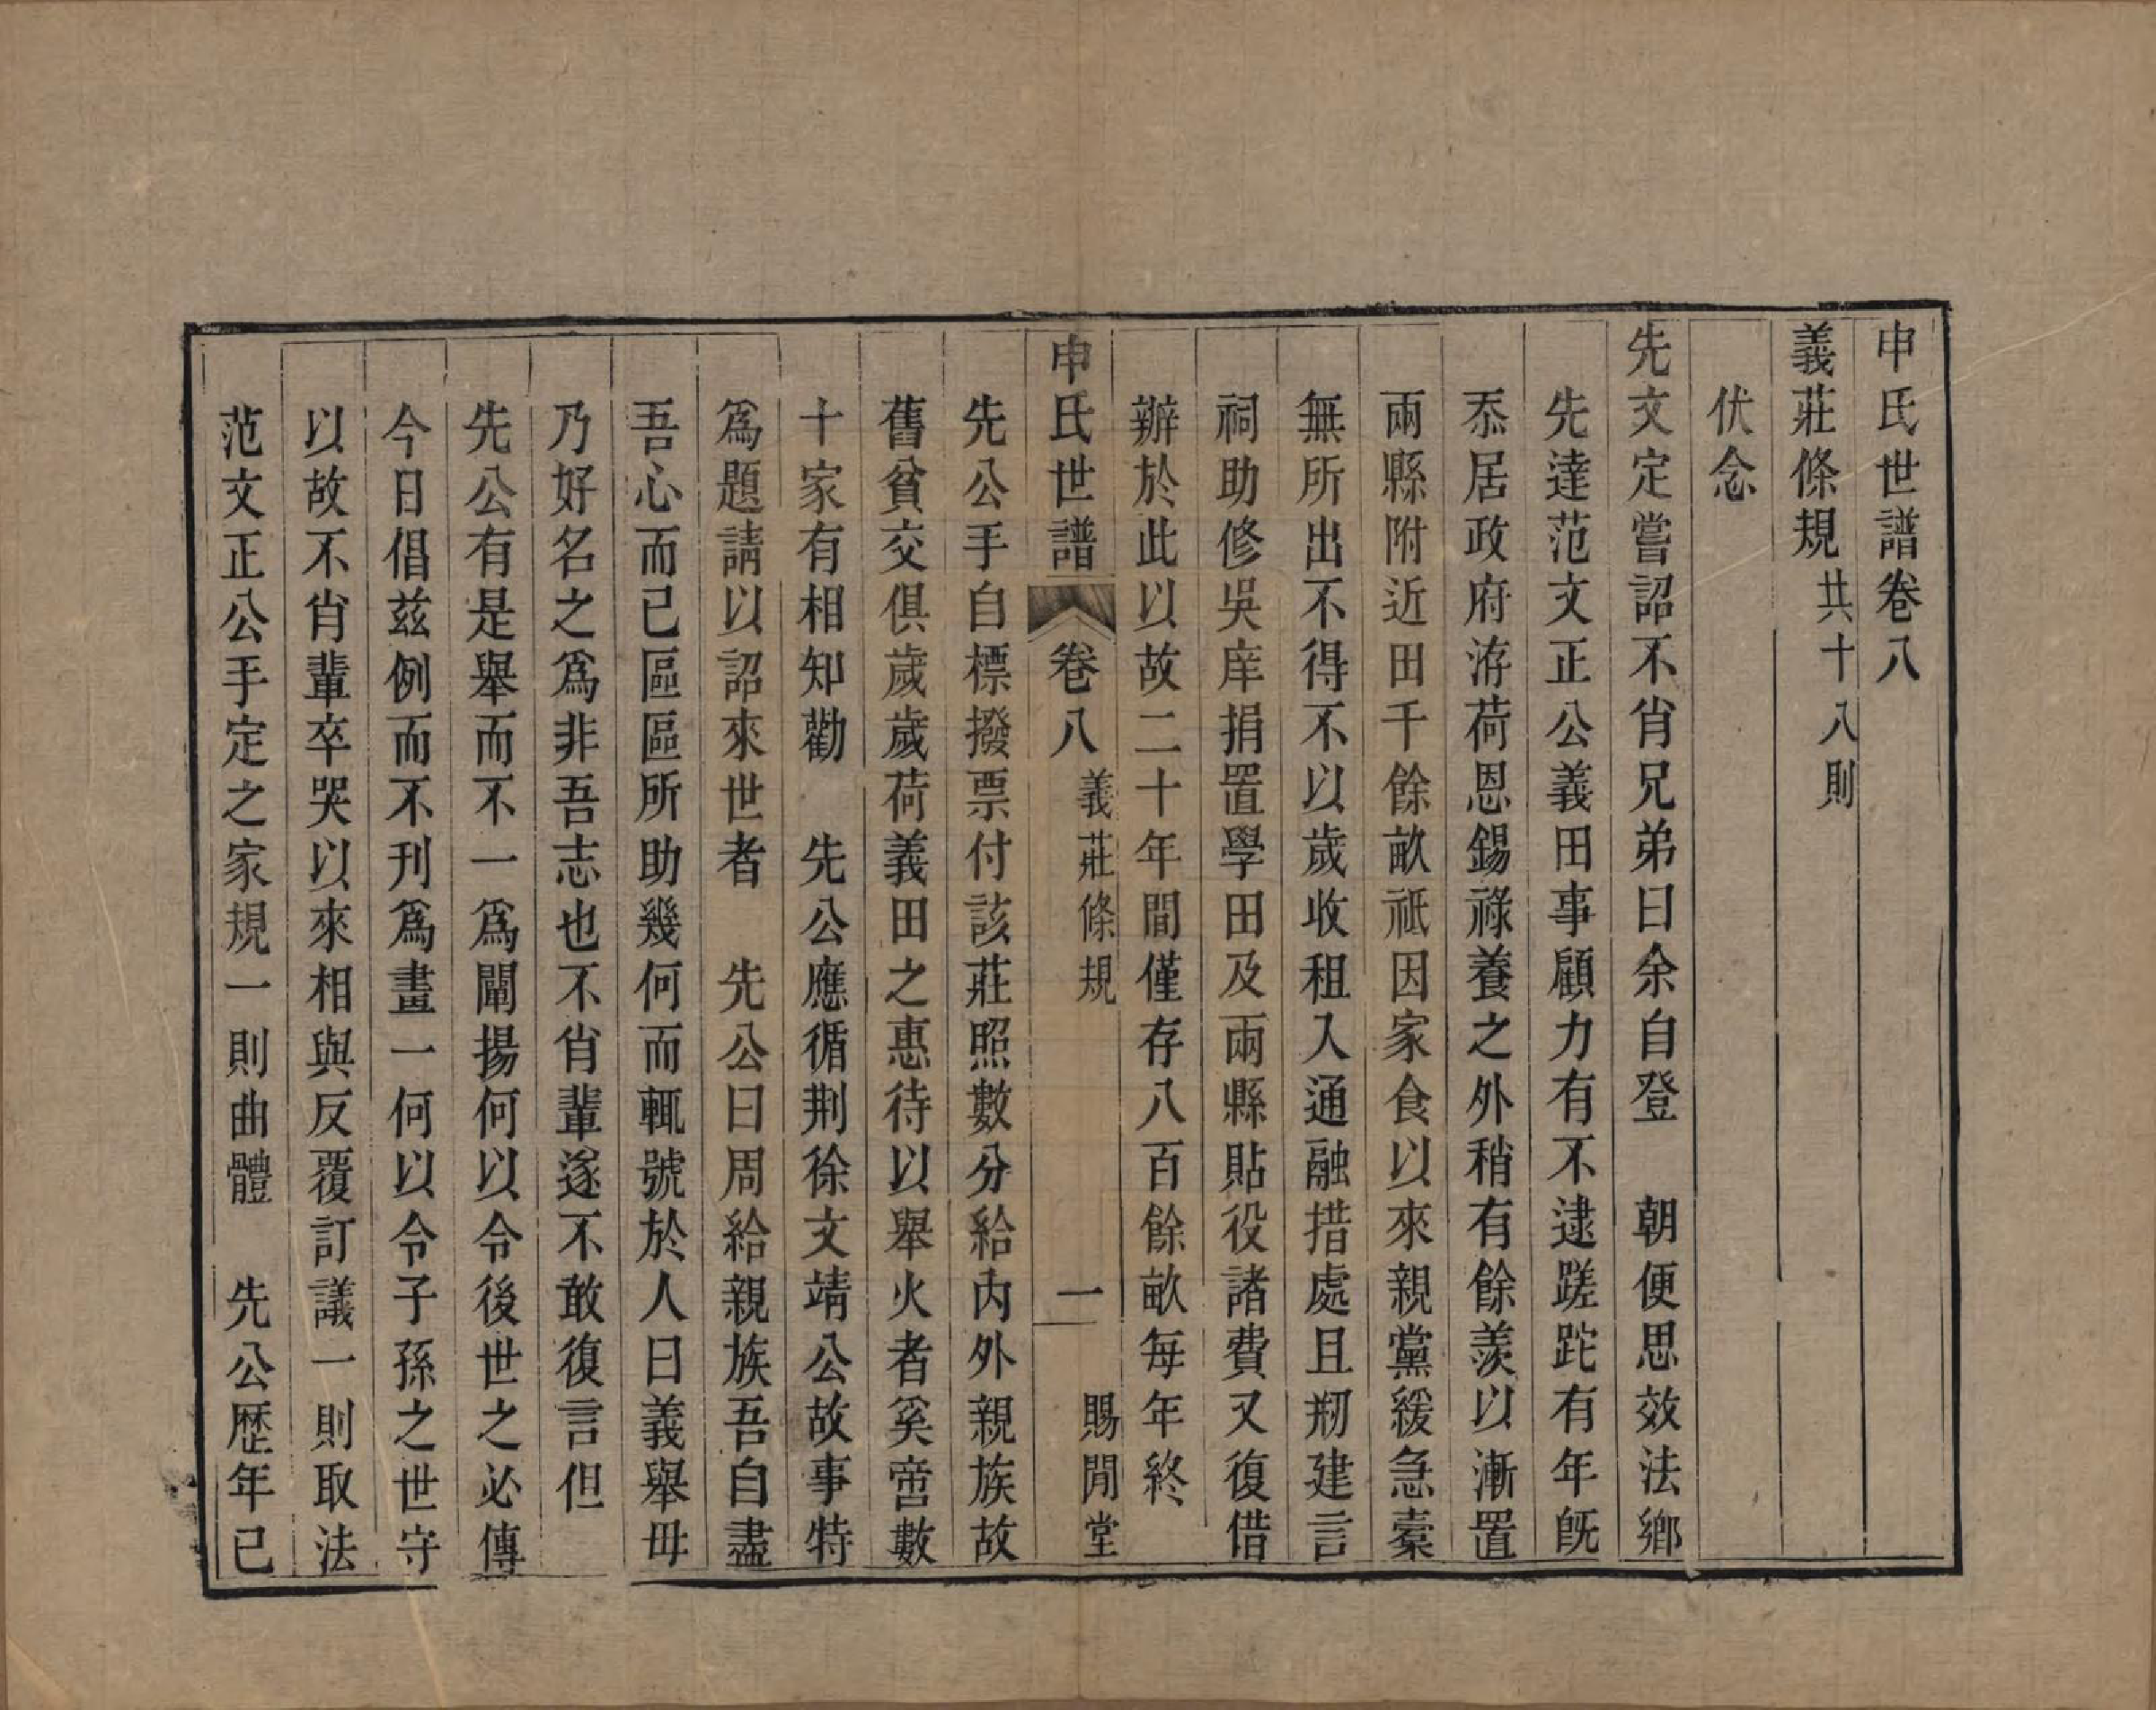 申氏世譜卷八
義莊條規共十八則
伏念
先文定嘗詔不肖兄弟曰余自登　朝便思效法鄉
先達范文正公義田事顧力有不逮蹉跎有年旣
忝居政府洊荷恩錫祿養之外稍有餘羨以漸置
兩縣附近田千餘畝祇因家食以來親黨緩急槖
無所出不得不以歲收租入通融措處且剏建言
祠助修吳庠捐置學田及兩縣貼役諸費又復借
辦於此以故二十年間僅存八百餘畝每年終
申氏世譜　卷八　義莊條規　一　賜閒堂
先公手自標撥票付該莊照數分給內外親族故
舊貧交俱歲歲荷義田之惠待以舉火者奚啻數
十家有相知勸　先公應循荆徐文靖公故事特
爲題請以詔來世者　先公曰周給親族吾自盡
吾心而已區區所助幾何而輒號於人曰義舉毋
乃好名之爲非吾志也不肖輩遂不敢復言但
先公有是舉而不一爲闡揚何以令後世之必傳
今日倡兹例而不刊爲畫一何以令子孫之世守
以故不肖輩卒哭以來相與反覆訂議一則取法
范文正公手定之家規一則曲體　先公歷年已